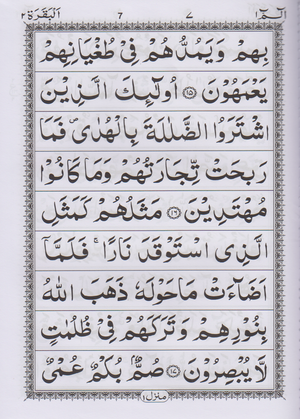 الٓمّٓ ١ ٧ 7 البقرة ٢
بِهِمْ وَيَمُدُّهُمْ فِيْ طُغْيَانِهِمْ
يَعْمَهُوْنَ ﴿١٥﴾ اُولٰٓئِكَ الَّذِيْنَ
اشْتَرَوُا الضَّلٰلَةَ بِالْهُدٰى فَمَا
رَبِحَتْ تِّجَارَتُهُمْ وَمَا كَانُوْا
مُهْتَدِيْنَ ﴿١٦﴾ مَثَلُهُمْ كَمَثَلِ
الَّذِى اسْتَوْقَدَ نَارًا ۚ فَلَمَّآ
اَضَآءَتْ مَا حَوْلَهٗ ذَهَبَ اللّٰهُ
بِنُوْرِهِمْ وَتَرَكَهُمْ فِيْ ظُلُمٰتٍ
لَّا يُبْصِرُوْنَ ﴿١٧﴾ صُمٌّۢ بُكْمٌ عُمْىٌ
منزل ١